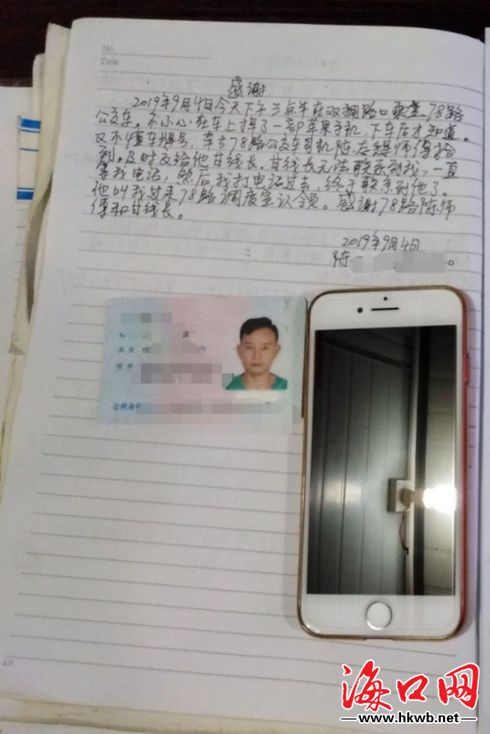 No.
Date
感谢
2019年9月4日今天下午3点半在双拥路口乘坐78路
公交车。不小心在车上掉了一部苹果手机,下车后才知道。
又不懂车牌号,幸亏78路公交车司机陈师傅捡
到。及时交给他甘线长。甘线长无法联系到我,一直
等我电话,然后我打电话过去,终于联系到他了。
他叫我过来78路调度室认领。感谢78路陈师
傅和甘线长。
2019年9月4日
陈
公民身份
海口网
www.hkwb.net